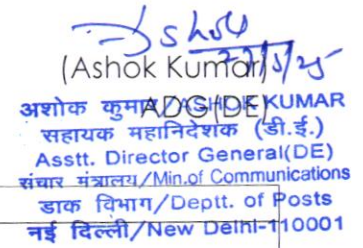 Ashok
(Ashok Kumar)
ADG(DE)
अशोक कुमार/ASHOK KUMAR
सहायक महानिदेशक (डी.ई.)
Asstt. Director General(DE)
संचार मंत्रालय/Min.of Communications
डाक विभाग/Deptt. of Posts
नई दिल्ली/New Delhi-110001